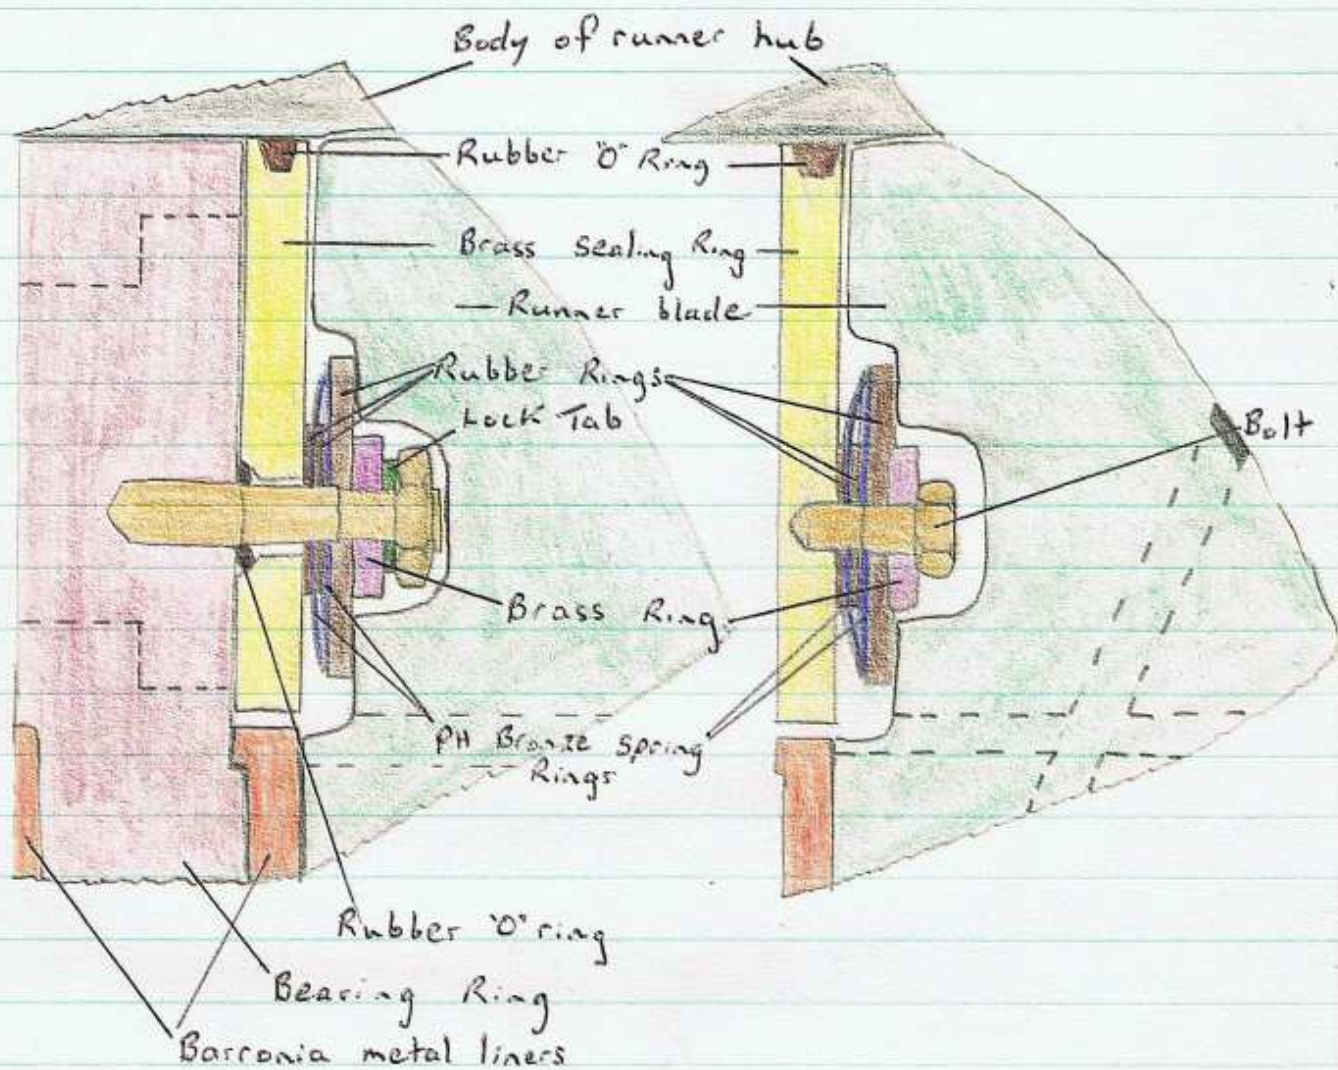 Body of runner hub
Rubber "O" Ring
Brass sealing Ring
Runner blade
Rubber Rings
Lock Tab
Bolt
Brass Ring
PH Bronze spring
Rings
Rubber "O" ring
Bearing Ring
Barronia metal liners